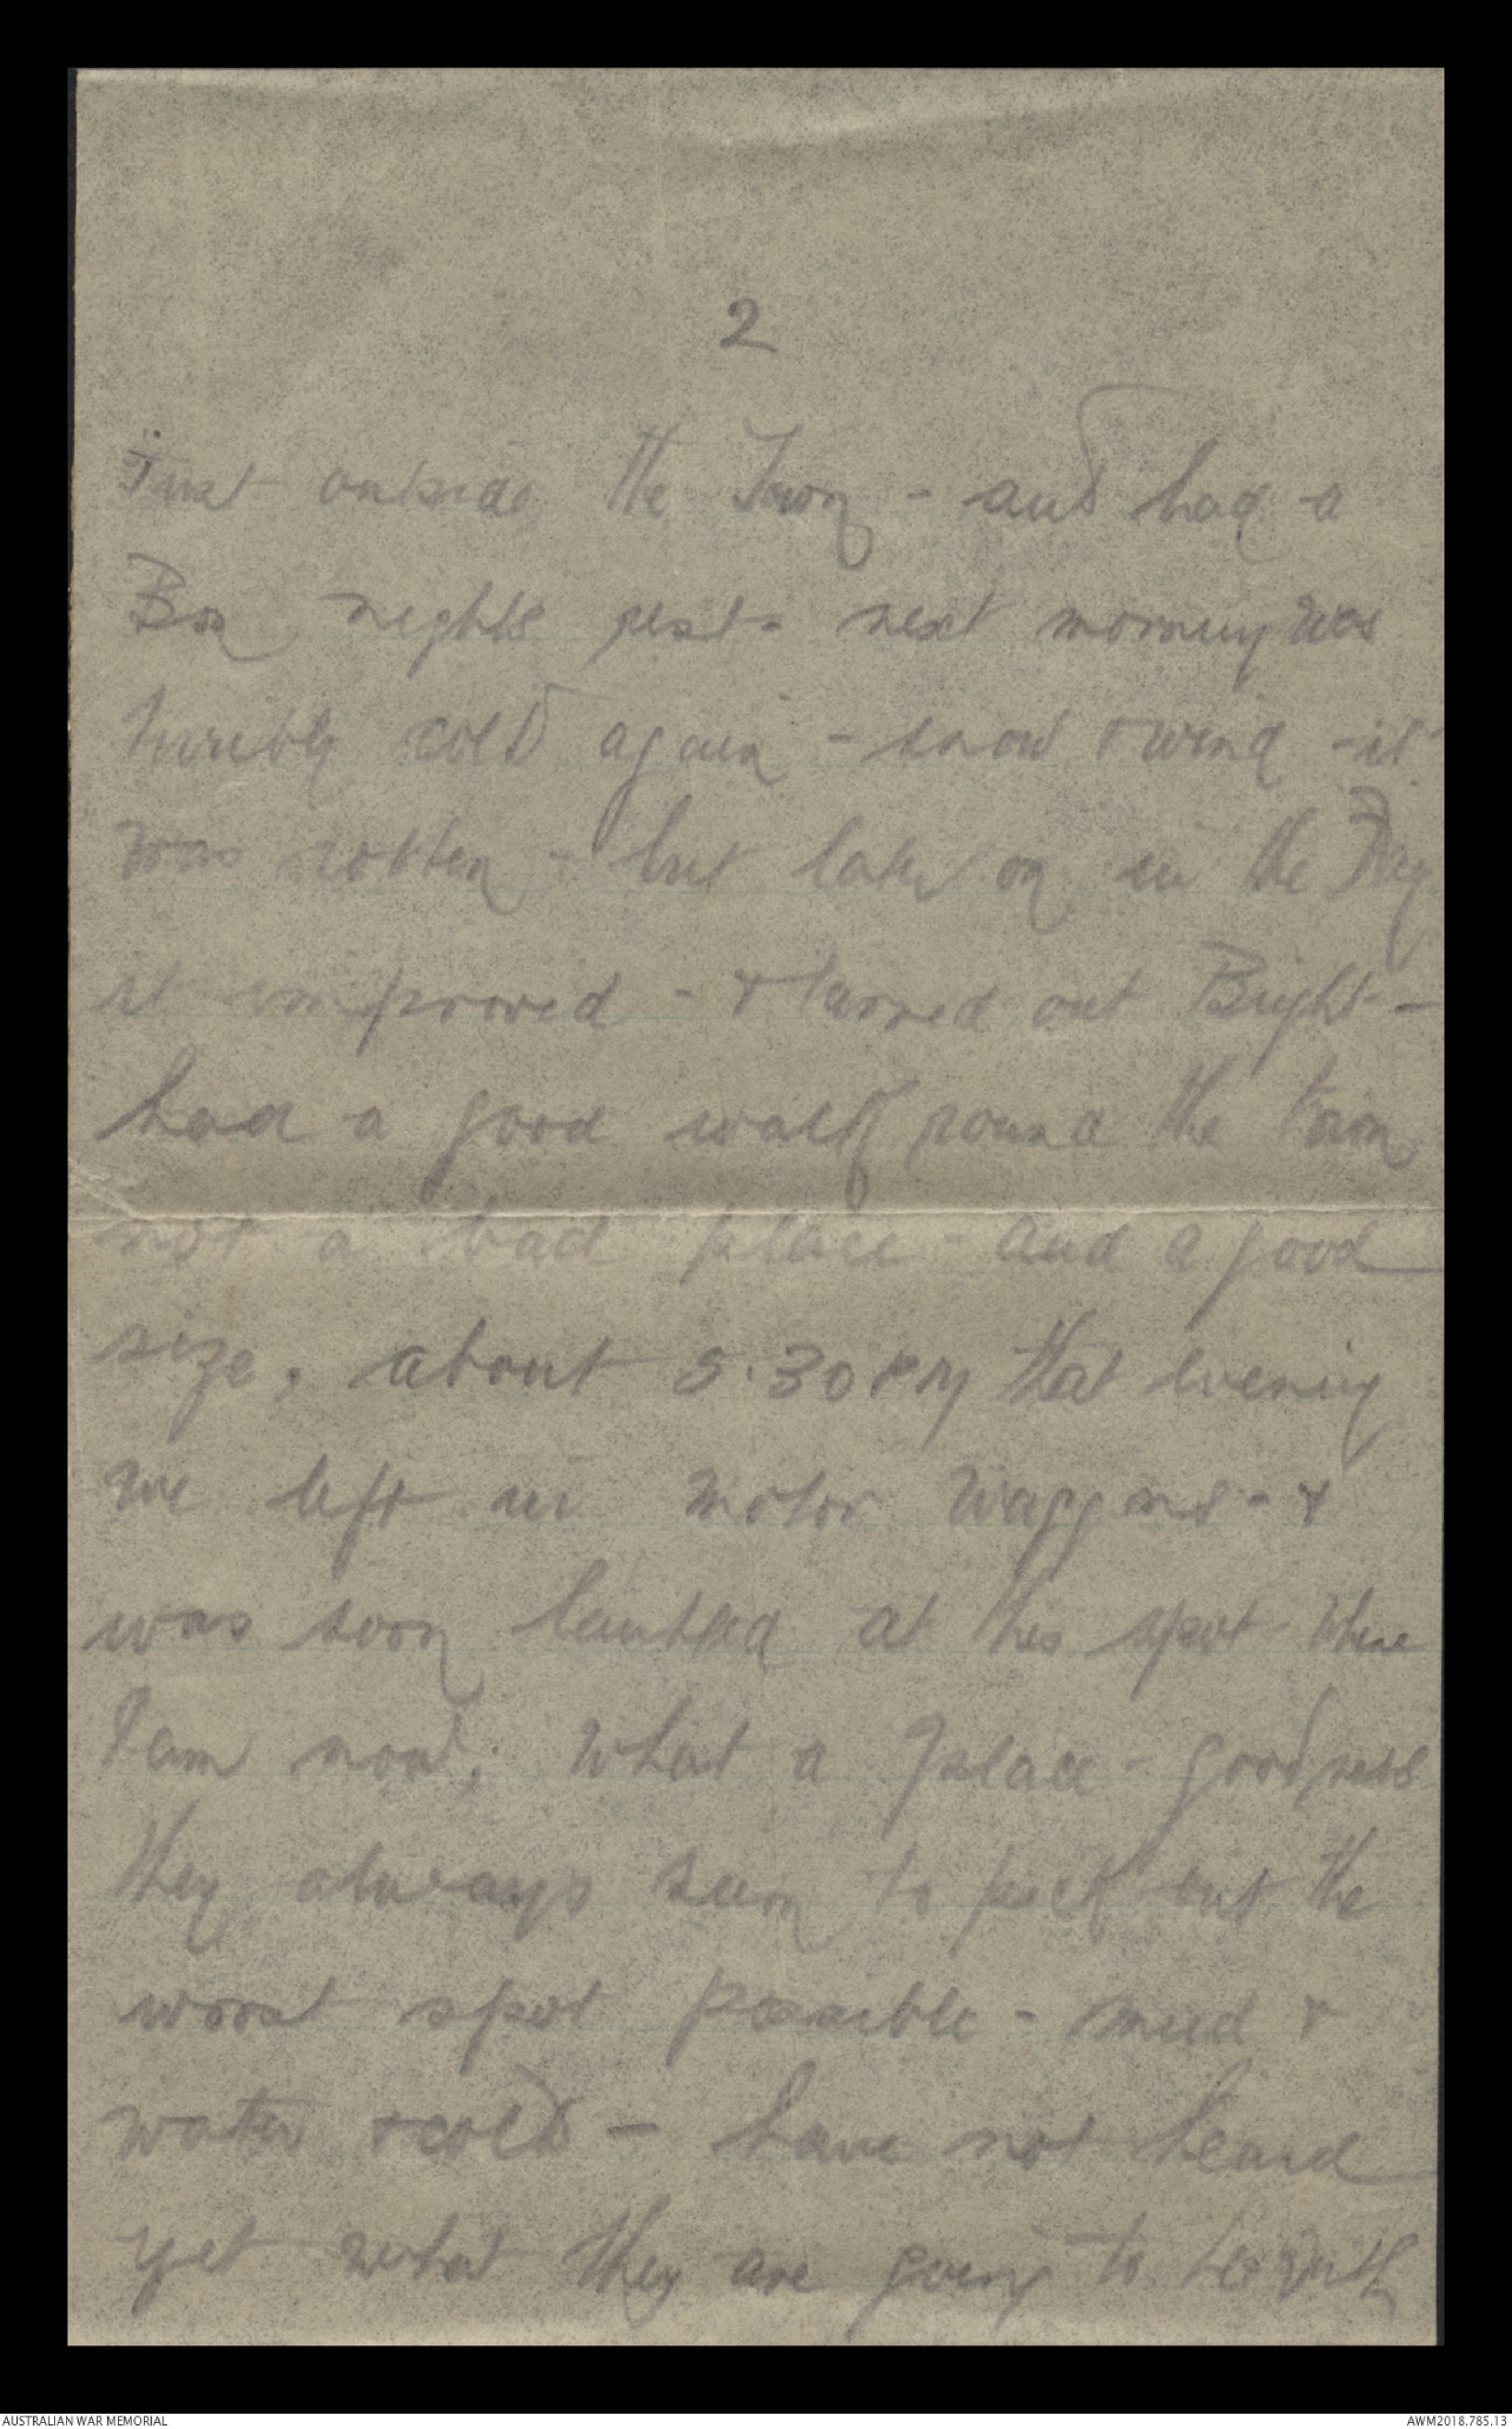 2
Just outside the Town - and had a
nights rest - next morning was
terribly cold again - snow & wind - it
was rotten - but later on in the Day
it improved - & turned out Bright -
had a good walk round the town
not a bad place - and a good
size, about 5.30 PM that evening
we left in motor waggons - &
was soon landed at this spot where
I am now. What a place - goodness
they always seem to pick out the
worst spot possible - mud &
water & cold - have not heard
yet what they are going to do with
AUSTRALIAN WAR MEMORIAL
AWM2018.785.13